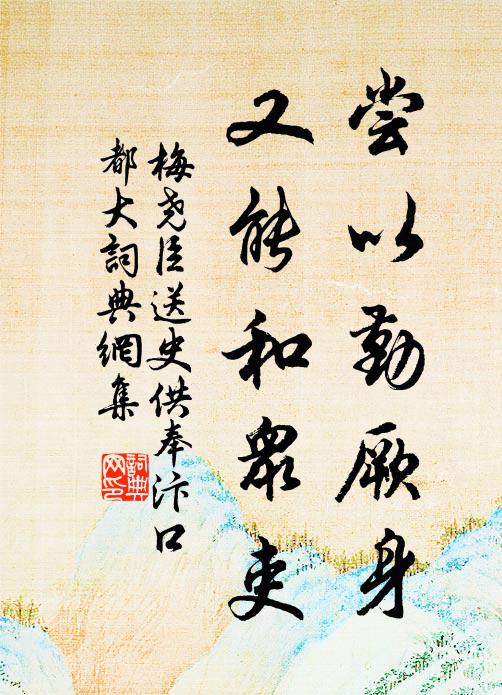 尝以勤厥身
又能和众吏
梅尧臣送史供奉汴口
都大詞典網集
詞典
网印